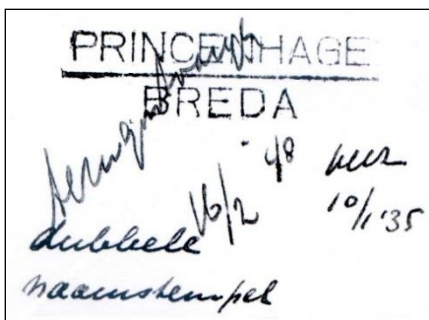 PRINCENHAGE
BREDA
48 keer
16/2 10/1'35
dubbele
naamstempel